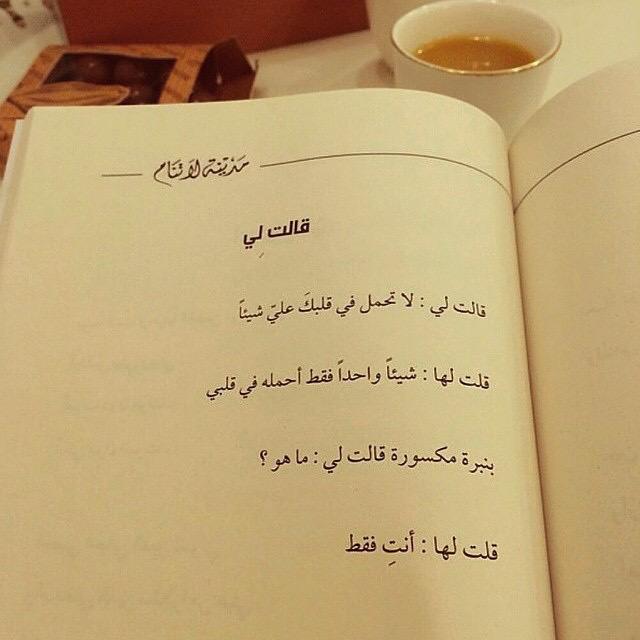 مَدْيَنة لَا تَنَام
قالت لِي
قالت لي : لا تحمل في قلبكَ عليّ شيئاً
قلت لها : شيئاً واحداً فقط أحمله في قلبي
بنبرة مكسورة قالت لي : ما هو ؟
قلت لها : أنتِ فقط